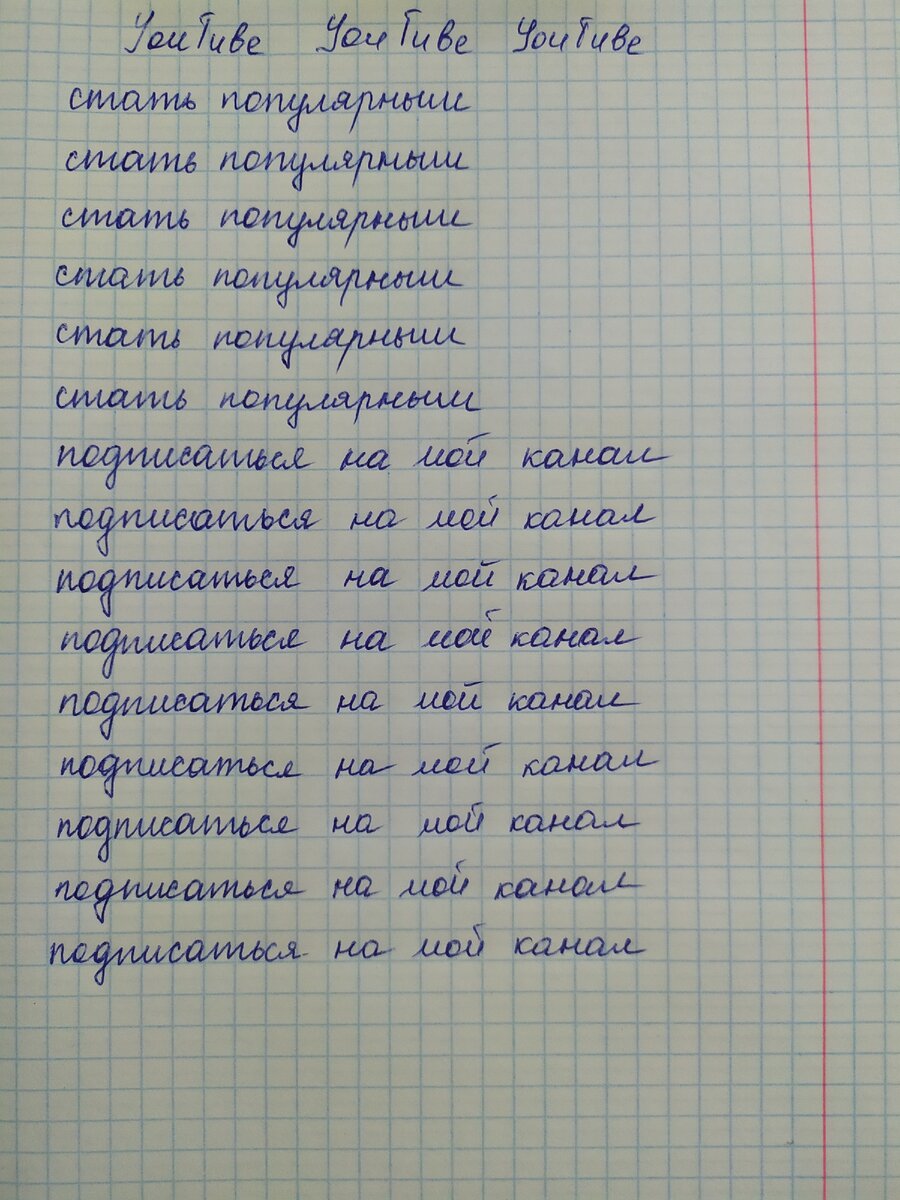 YouTube YouTube YouTube
стать популярным
стать популярным
стать популярным
стать популярным
стать популярным
стать популярным
подписаться на мой канал
подписаться на мой канал
подписаться на мой канал
подписаться на мой канал
подписаться на мой канал
подписаться на мой канал
подписаться на мой канал
подписаться на мой канал
подписаться на мой канал